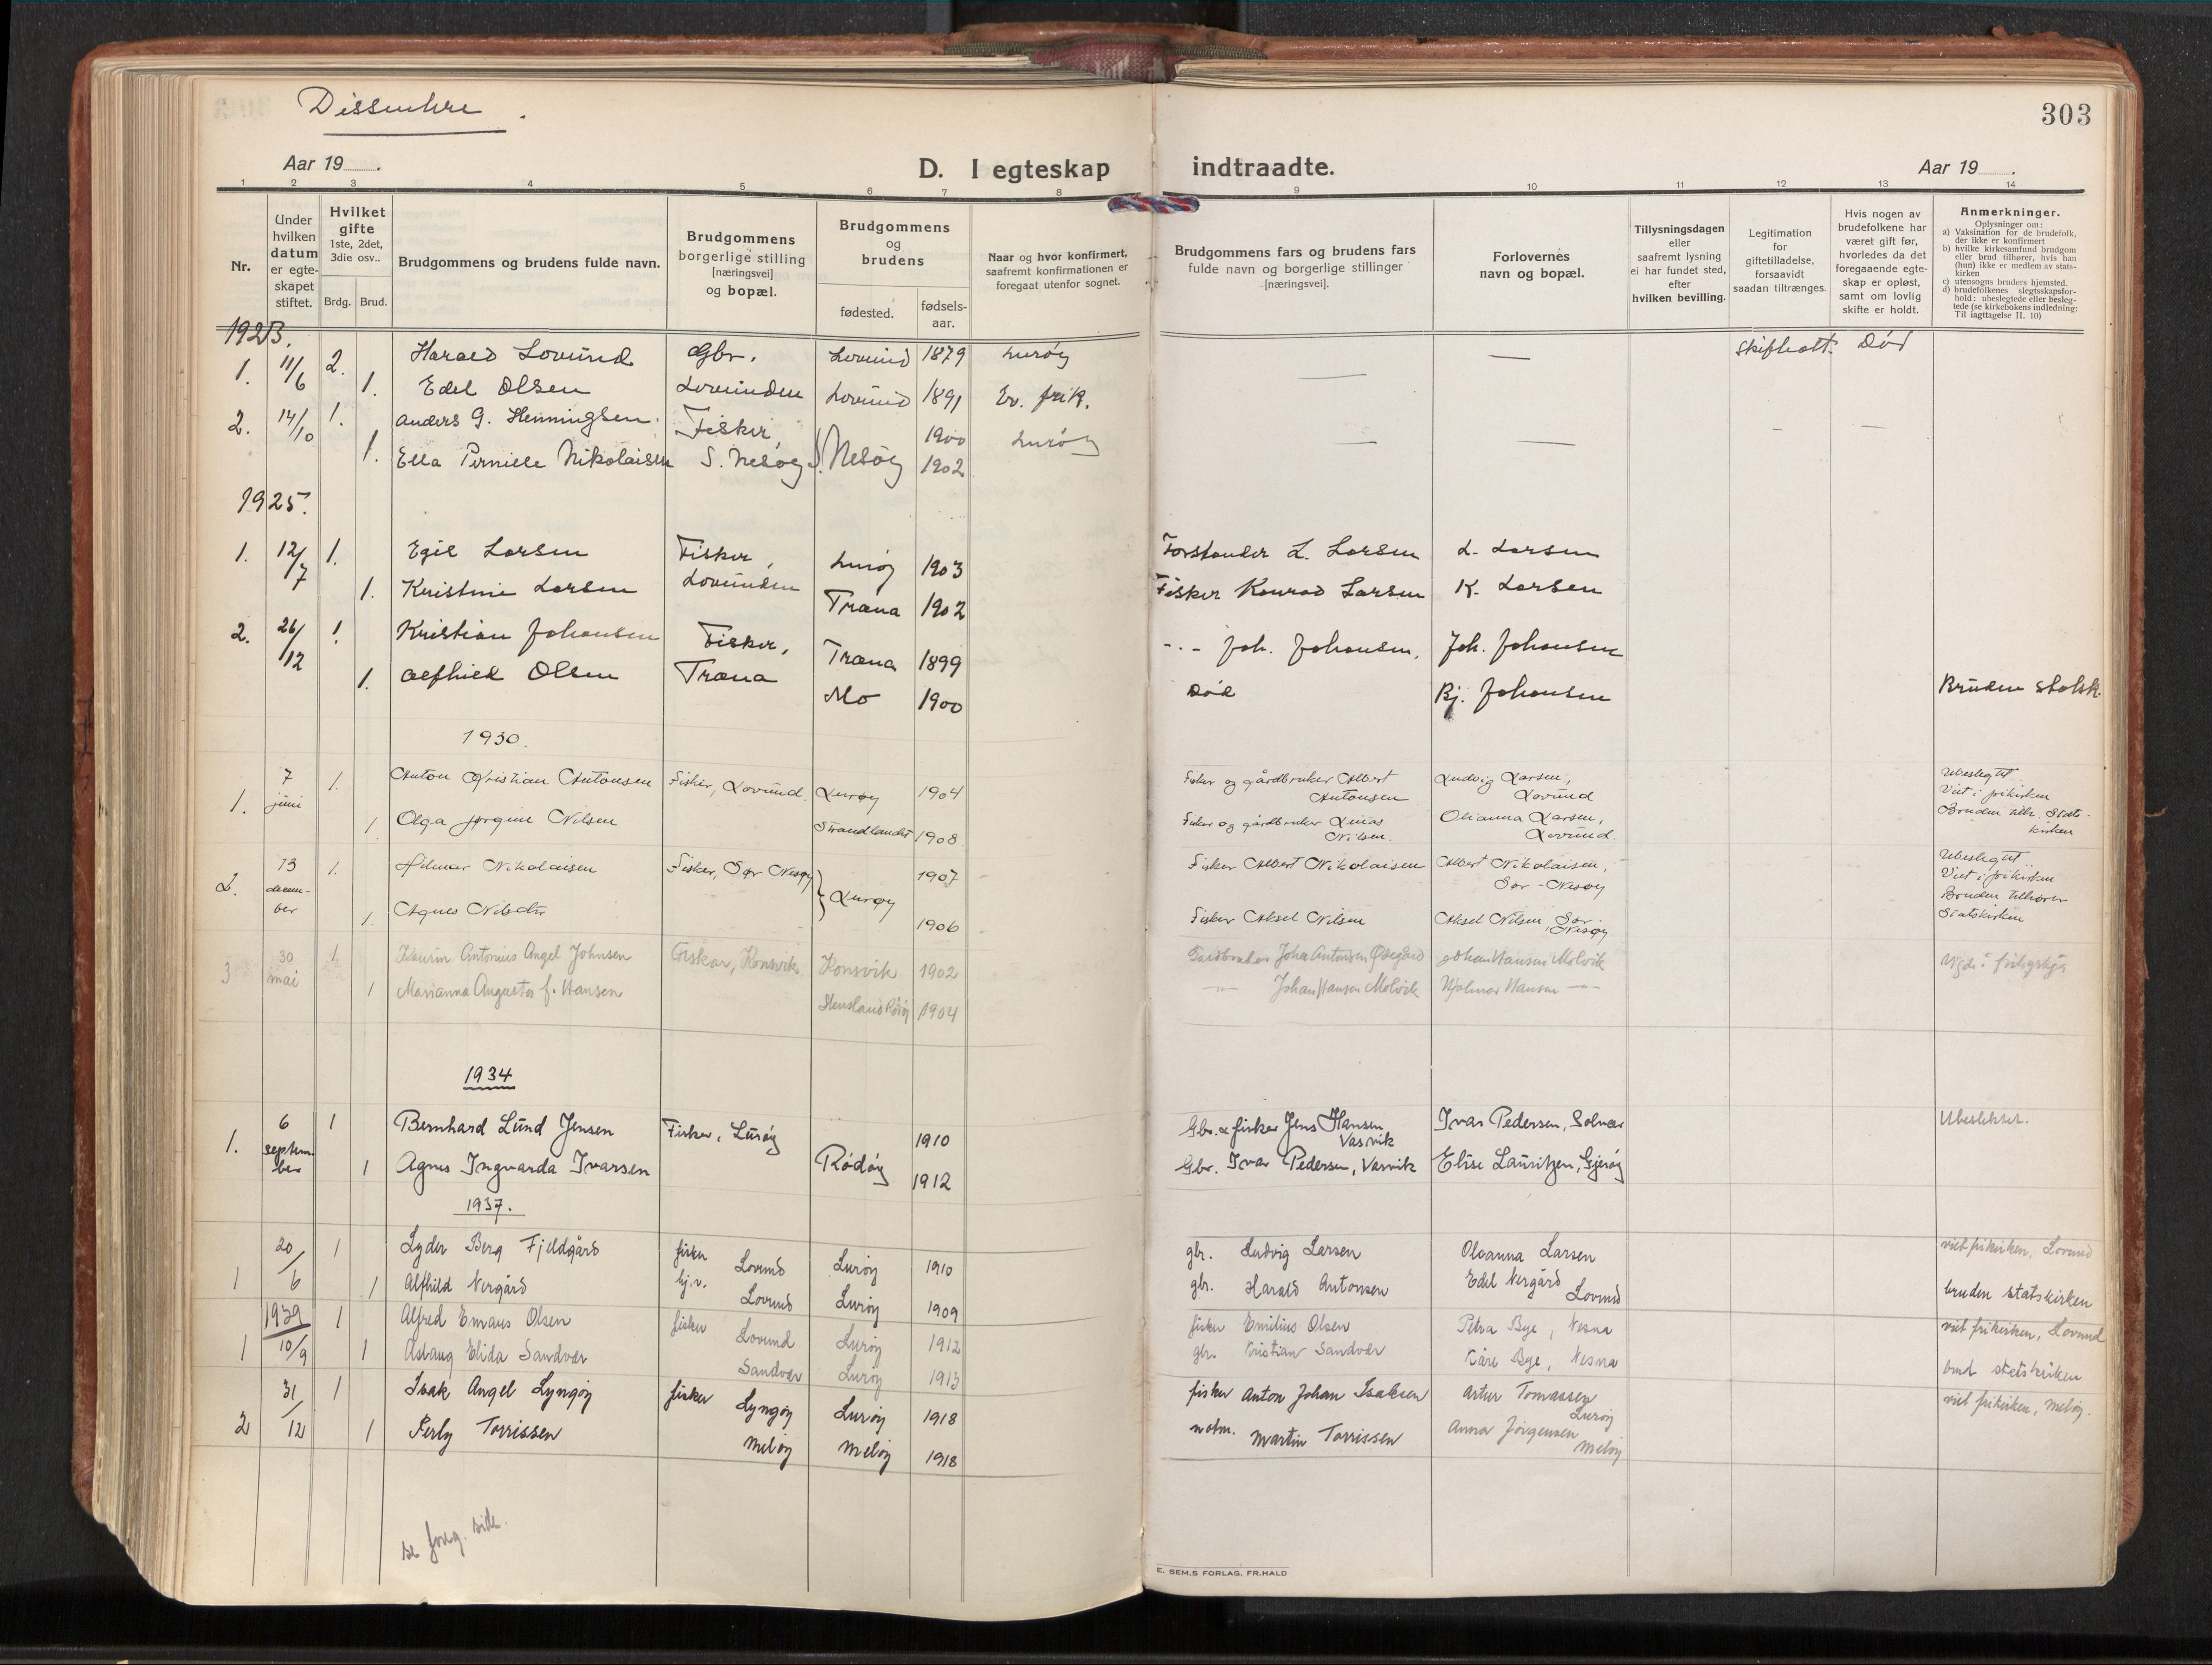 Dissentere.
303
Aar 19 .
D. I egteskap indtraadte.
Aar 19 .
1 2 3 4 5 6 7 8 9 10 11 12 13 14
Nr.
Under hvilken datum er egte-skapet stiftet.
Hvilket gifte 1ste, 2det, 3die osv..
Brdg. Brud.
Brudgommens og brudens fulde navn.
Brudgommens borgerlige stilling [næringsvei] og bopæl.
Brudgommens og brudens
fødested. fødsels-aar.
Naar og hvor konfirmert, saafremt konfirmationen er foregaat utenfor sognet.
Brudgommens fars og brudens fars fulde navn og borgerlige stillinger [næringsvei].
Forlovernes navn og bopæl.
Tillysningsdagen eller saafremt lysning ei har fundet sted, efter hvilken bevilling.
Legitimation for giftetilladelse, forsaavidt saadan tiltrænges.
Hvis nogen av brudefolkene har været gift før, hvorledes da det foregaaende egte-skap er opløst, samt om lovlig skifte er holdt.
Anmerkninger.
Oplysninger om:
a) Vaksination for de brudefolk, der ikke er konfirmert
b) hvilke kirkesamfund brudgom eller brud tilhører, hvis han (hun) ikke er medlem av stats-kirken
c) utensogns bruders hjemsted.
d) brudefolkenes slegtsskapsfor-hold: ubeslegtede eller besleg-tede (se kirkebokens indledning: Til iagttagelse II. 10)
1923.
1. 11/6 2. Harald Lovund Gbr. Lovund 1879 Lurøy — — skifteatt. Død
1. Edel Olsen Lovunden Lovund 1891 Ev. frik.
2. 14/10 1. Anders G. Henningsen. Fisker, 1900 Lurøy — — — —
1. Ella Pernille Nikolaisen S. Nesøy S. Nesøy 1902
1925.
1. 12/7 1. Egil Larsen Fisker, Lurøy 1903 Forstander L. Larsen L. Larsen
1. Kristine Larsen Lovunden Træna 1902 Fisker Konrad Larsen K. Larsen
2. 26/12 1. Kristian Johansen Fisker, Træna 1899 -.- Joh. Johansen. Joh. Johansen
1. Alfhild Olsen Træna Mo 1900 Død Bj. Johansen Bruden statsk.
1930.
1. 7 juni 1. Anton Kristian Antonsen Fisker, Lovund. Lurøy 1904 Fisker og gårdbruker Albert Antonsen Ludvig Larsen, Lovund Ubeslegtet. Viet i frikirken
1 Olga Jørgine Nilsen Strandlandet 1908 Fisker og gårdbruker Linas Nilsen. Olianna Larsen, Lovund. Bruden tilh. Stats-kirken
2. 13 decem-ber 1. Hilmar Nikolaisen Fisker, Sør Nesøy } Lurøy 1907 Fisker Albert Nikolaisen Albert Nikolaisen, Sør-Nesøy Ubeslegtet.. Viet i frikirken
1 Agnes Nilsen 1906 Fisker Aksel Nilsen Aksel Nilsen, Sør-Nesøy Bruden tilhører Statskirken
3 30 mai 1 Antonius Angel Johnsen Fisker, Konsvik Konsvik 1902 Gårdbruker Johan Antonsen Johan Hansen Molvik
1 Marianna Augusta f. Hansen 1904 —"— Johan Hansen Molvik Hjalmar Hansen —"—
1934
1. 6 septem-ber 1 Bernhard Lund Jensen Fisker, Lurøy Rødøy 1910 Gbr. & fisker Jens Hansen Vasvik Ivar Pedersen, Solvær Ubeslektet.
1 Agnes Ingvarda Ivarsen 1912 Gbr. Ivar Pedersen, Vasvik Elise Lauritzen, Gjerøy
1937.
1 20/6 1 Lyder Berg Fjeldgård fisker Lovund Lurøy 1910 gbr. Ludvig Larsen Oleanna Larsen viet frikirken, Lovund
1 Alfhild Nergård hj.v. Lovund Lurøy 1909 gbr. Harald Antonsen Edel Nergård Lovund bruden statskirken
1939
1 10/9 1 Alfred Emaus Olsen fisker Lovund Lurøy 1912 fisker Emilius Olsen Petra Bye, Nesna viet frikirken, Lovund
1 Aslaug Elida Sandvær Sandvær Lurøy 1913 gbr. Kristian Sandvær Kåre Bye, Nesna brud statskirken
2 31/12 1 Isak Angel Lyngøy fisker Lyngøy Lurøy 1918 fisker Anton Johan Isaksen Artur Tomassen Lurøy viet frikirken, Meløy.
1 Perly Torrissen Meløy Meløy 1918 Martin Torrissen Anna Jørgensen Meløy
se foreg. side.
E. SEM.S FORLAG, FR.HALD